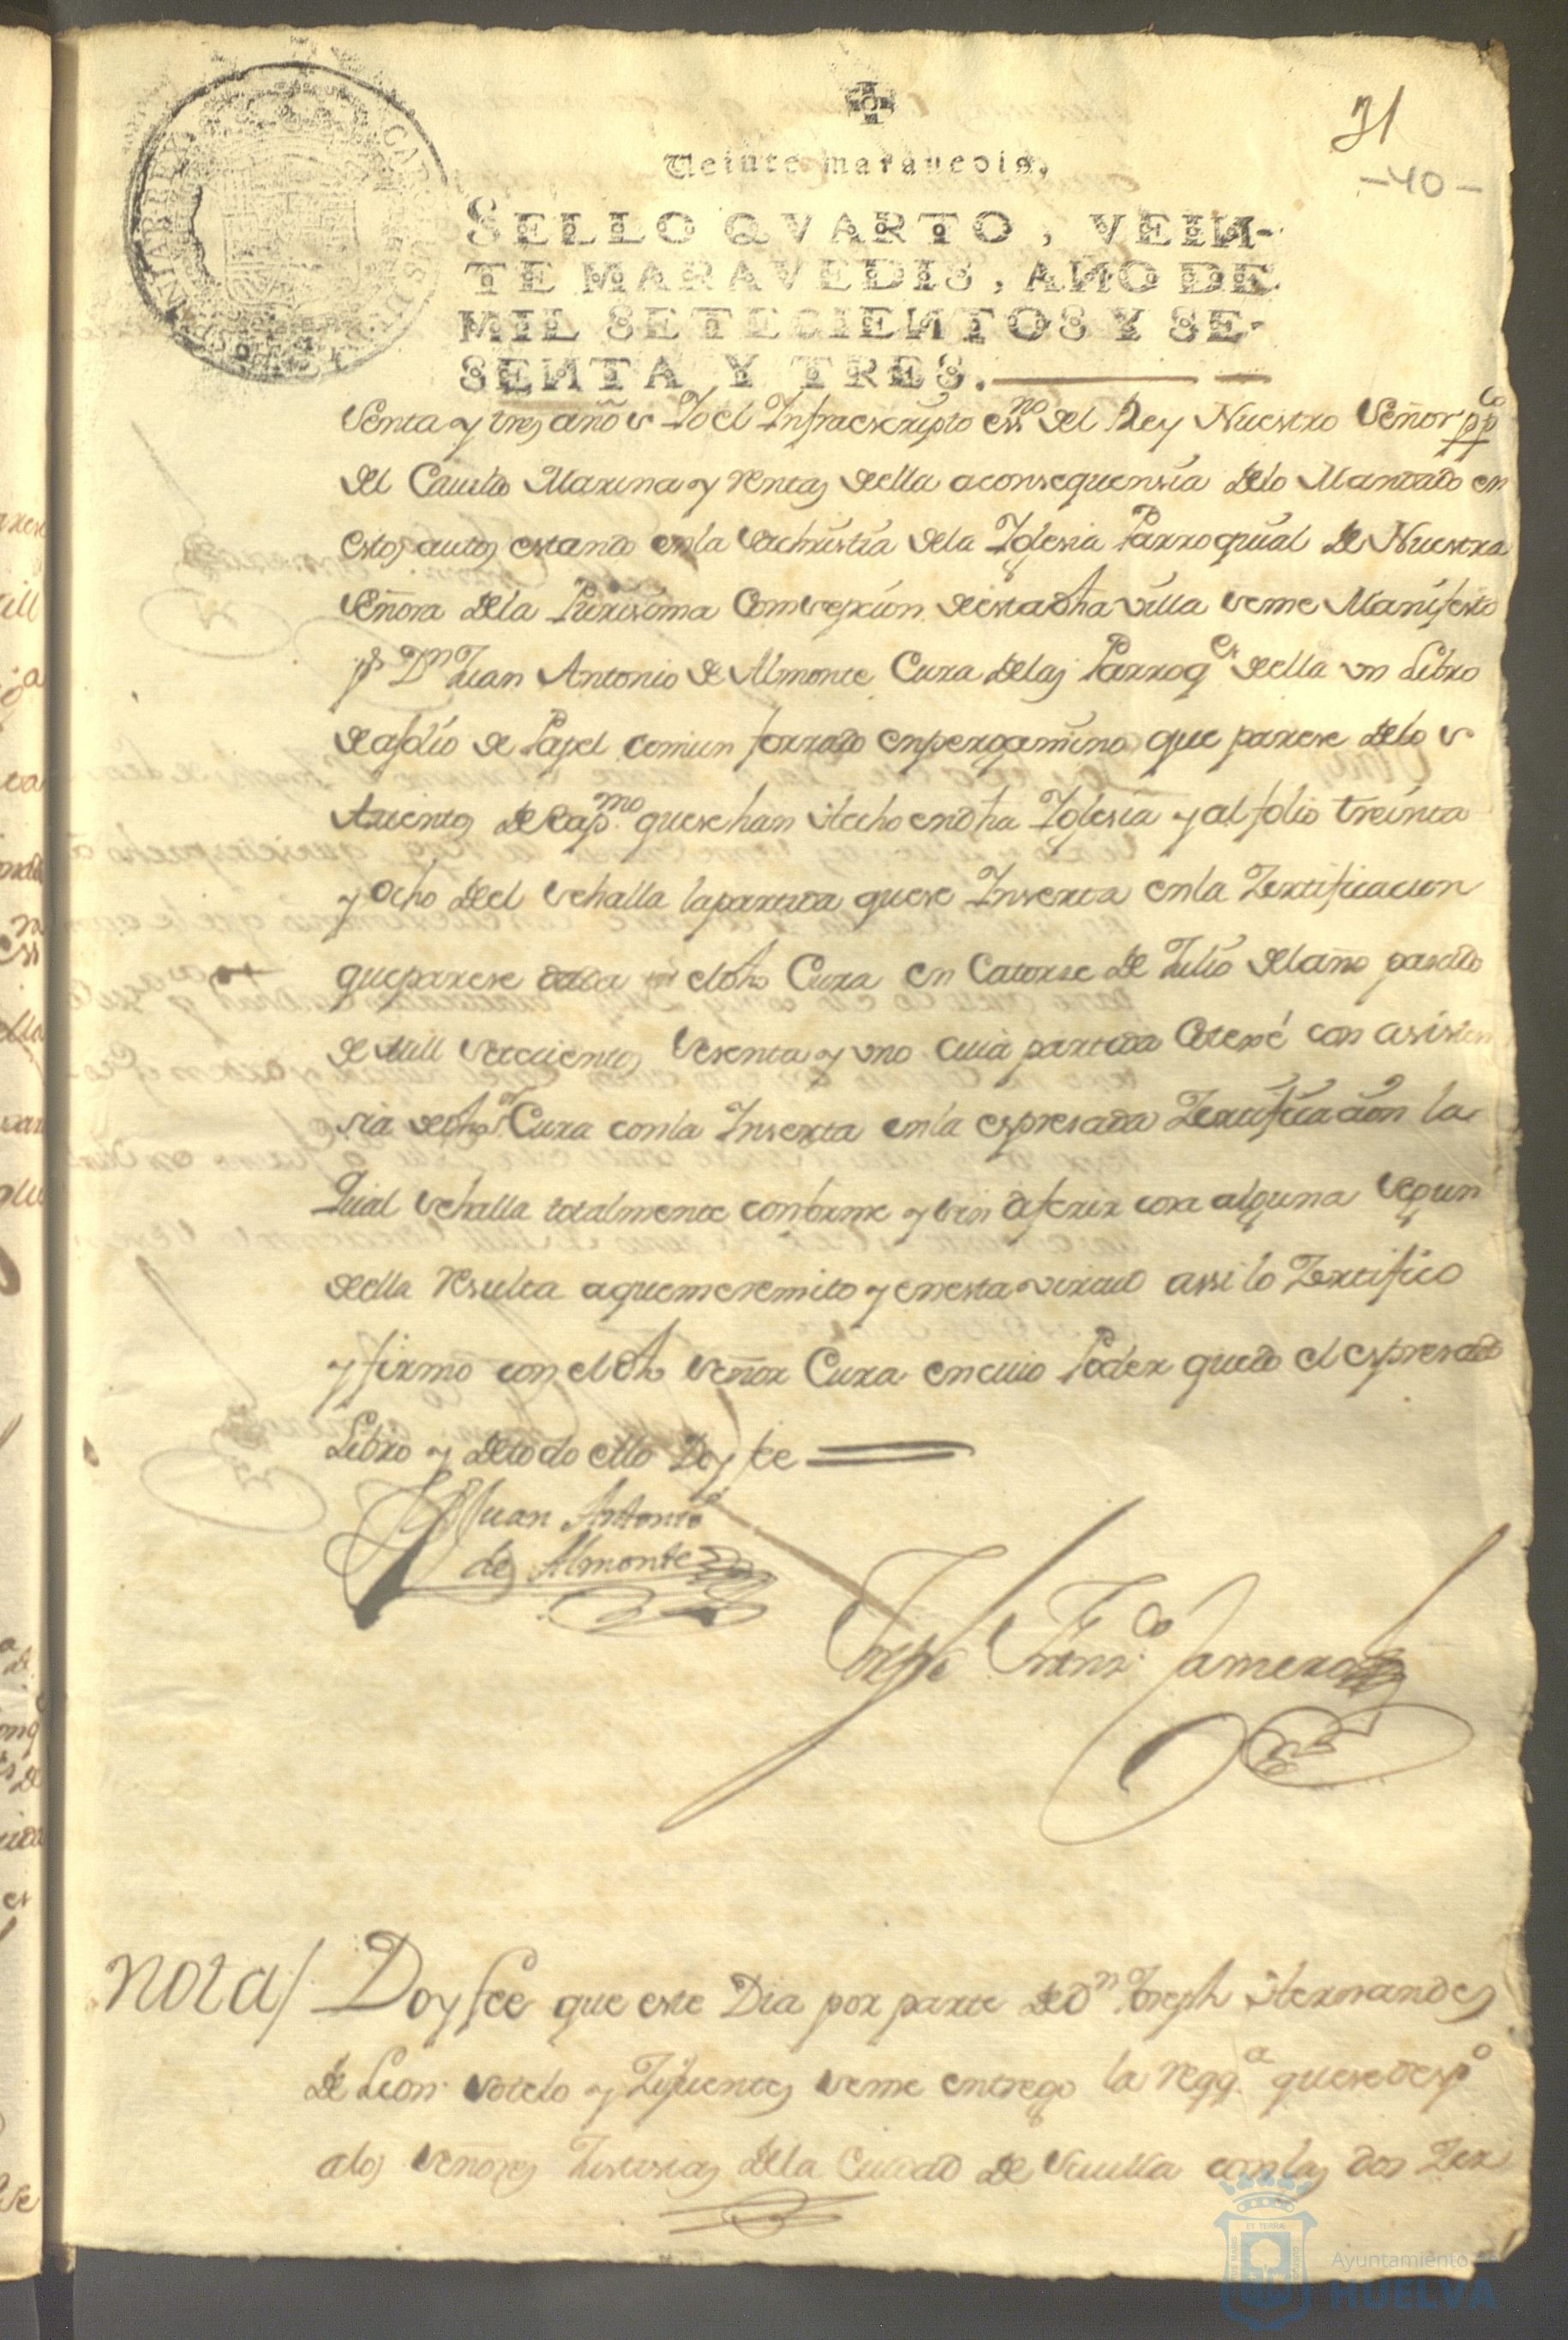 31
-40-
Veinte maravedis.
SELLO QVARTO, VEIN-
TE MARAVEDIS, AÑO DE
MIL SETECIENTOS Y SE-
SENTA Y TRES.
CAROLUS
senta y tres años Yo el Infraescripto essno del Rey Nuestro Señor ppco
del Cauildo Marina y rentas della aconsequensia delo Mandado en
estos autos estando enla Sachristia dela Iglesia Parroquial de Nuestra
Señora dela Purissima Consepsion de esta dha villa seme Manifesto
pr Dn Juan Antonio de Almonte Cura delas Parroqes della vn Libro
de afolio de Papel comun forrado enpergamino que parese delos
Asientos de Bapmo quesehan Hecho endha Iglesia y al folio treinta
y ocho del sehalla lapartida quese Inserta enla Zertificacion
queparese dada eldho Cura en Catorse de Julio delaño pasado
de Mill setecientos sesenta y vno cuia partida Cotexé con asisten
sia dedho Sor Cura conla Inserta enla espresada Zertificacion la
Qual sehalla totalmente conforme y sin diferir cosa alguna segun
della resulta aquemeremito y enesta virtud assi lo Zertifico
y firmo con eldho señor Cura encuio Poder quedo el espresado
Libro y detodo ello Doy fee
Juan Antonio
de Almonte
Joseph Franco Camero
nota/ Doy fee que este Dia por parte deDn Joseph Hernandes
de Leon Sotelo y Zifuentes seme entrego la reqqa quesedespo
alos Señores Justisias dela Ciudad de Seuilla conlas dos Zer
ET TERRA
Ayuntamiento de
HUELVA